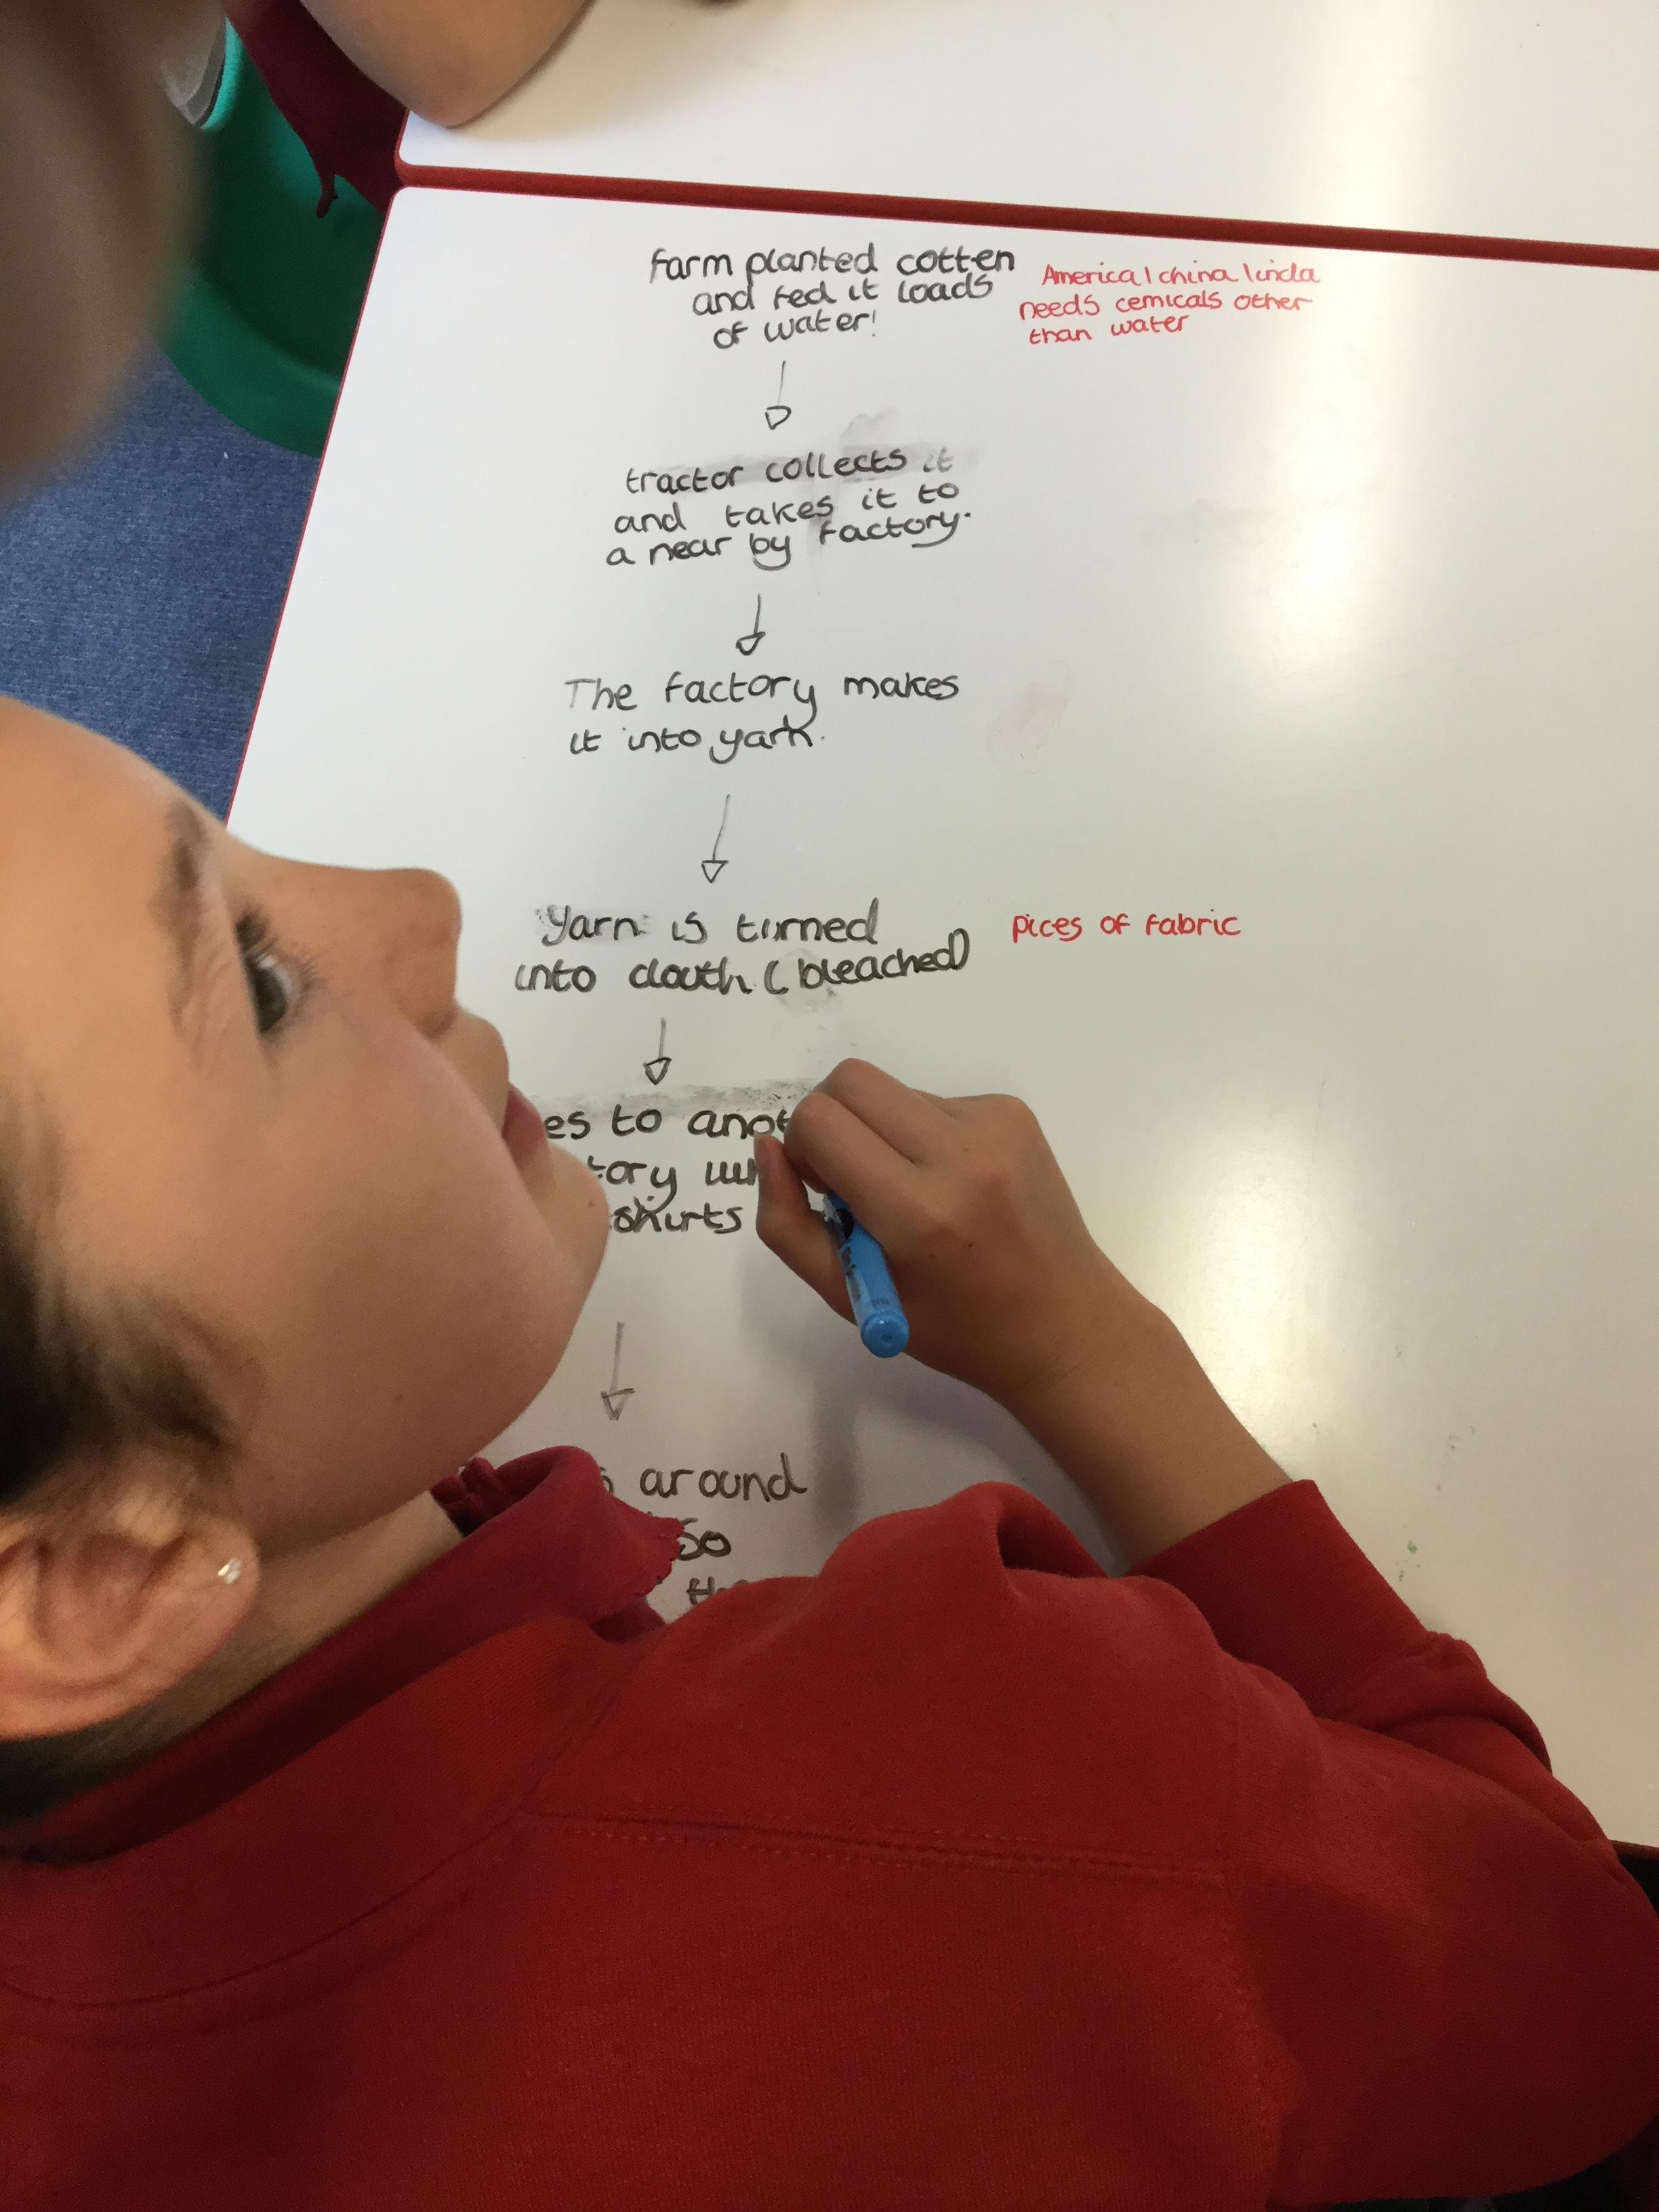 farm planted cotten
and fed it loads
of water!
America / china / india
needs cemicals other
than water
tractor collects it
and takes it to
a near by factory.
The factory makes
it into yarn.
Yarn is turned
into clouth (bleached)
pices of fabric
to
shirts
around
so